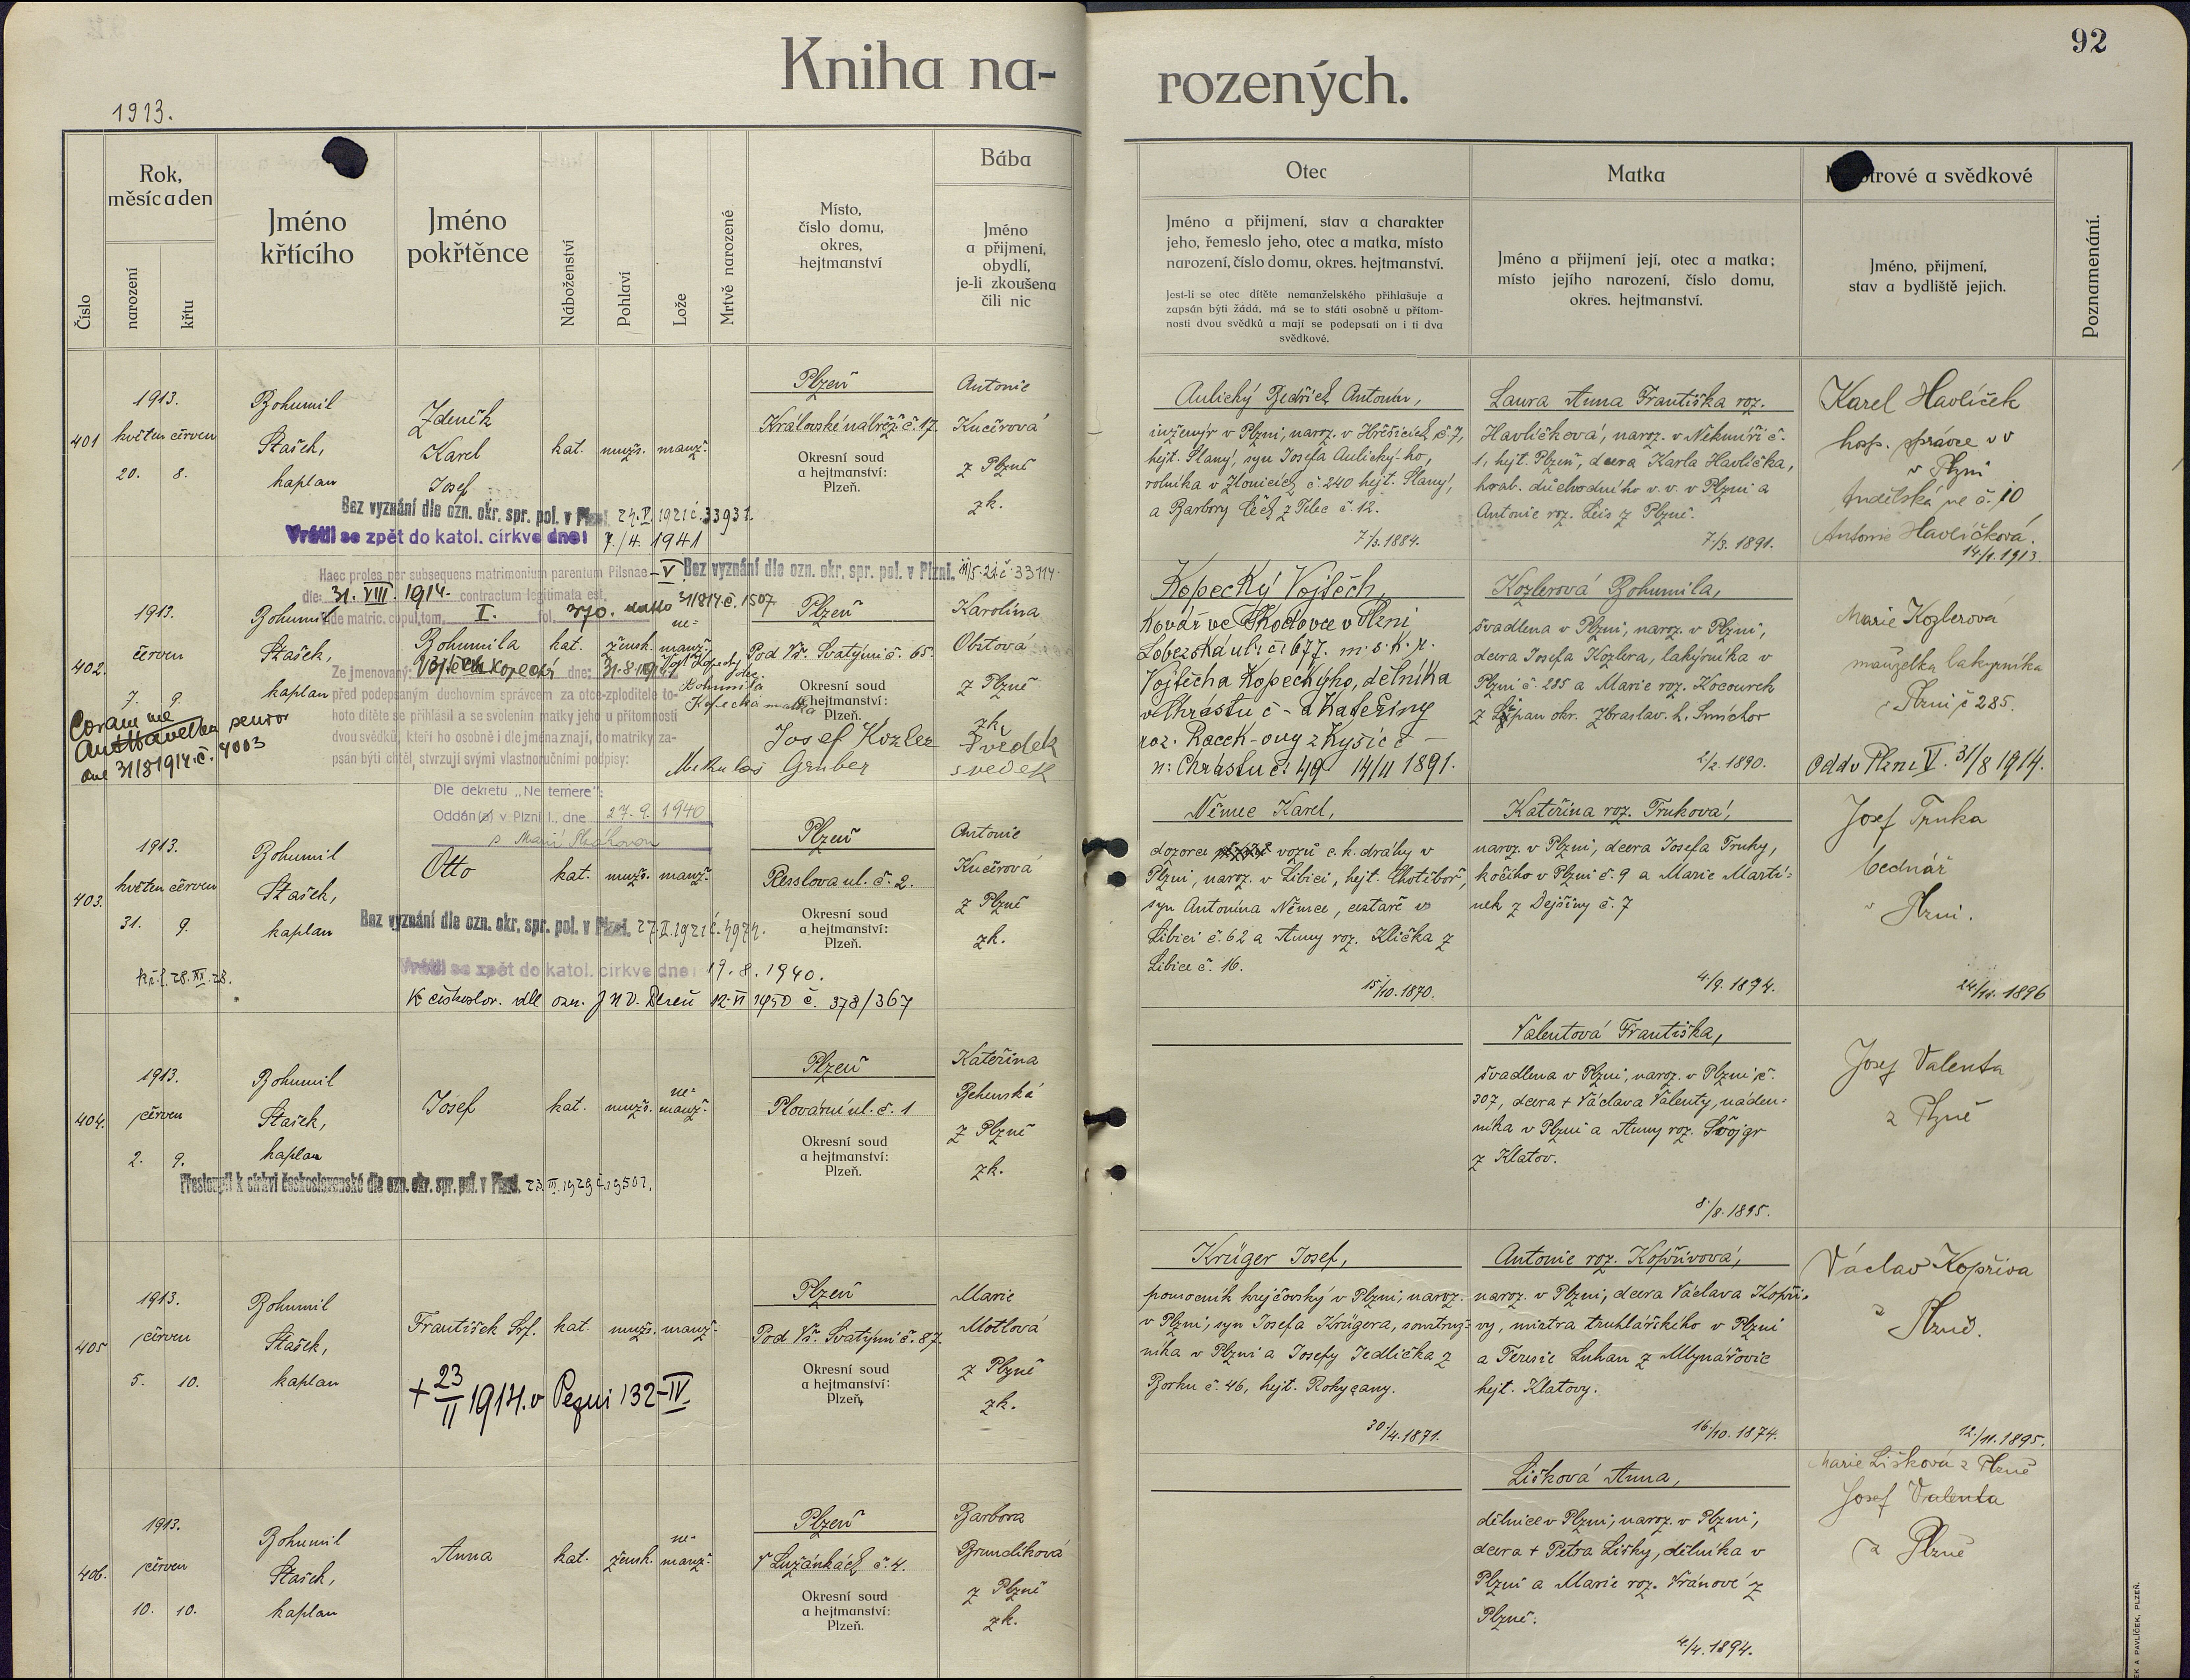 Kniha na-
rozených.
92
1913.
Číslo
Rok,
měsíc a den
narození
křtu
Jméno
křtícího
Jméno
pokřtěnce
Náboženství
Pohlaví
Lože
Mrtvě narozené
Místo,
číslo domu,
okres,
hejtmanství
Bába
Jméno
a přijmení,
obydlí,
je-li zkoušena
čili nic
Otec
Jméno a přijmení, stav a charakter
jeho, řemeslo jeho, otec a matka, místo
narození, číslo domu, okres. hejtmanství.
Jest-li se otec dítěte nemanželského přihlašuje a
zapsán býti žádá, má se to státi osobně u přítom-
nosti dvou svědků a mají se podepsati on i ti dva
svědkové.
Matka
Jméno a přijmení její, otec a matka;
místo jejího narození, číslo domu,
okres. hejtmanství.
a svědkové
Jméno, přijmení,
stav a bydliště jejich.
Poznamenání.
401
1913.
květen červen
20. 8.
Bohumil
Stašek,
kaplan
Zdeněk
Karel
Josef
kat. mužs. manž.
Plzeň
Královské nábřež. č. 17.
Okresní soud
a hejtmanství:
Plzeň.
Antonie
Kučerová
z Plzně
zk.
Bez vyznání dle ozn. okr. spr. pol. v Plzni 1921 č. 33931.
Vrátil se zpět do katol. církve dne: 7./4. 1941
Aulický Bedřich Antonín,
inženýr v Plzni, naroz. v Hřešicích č. 7,
hejt. Slaný, syn Josefa Aulického,
rolníka v Zlonicích č. 240 hejt. Slaný,
a Barbory Čech z Telec č. 12.
7/3. 1884.
Laura Anna Františka roz.
Havlíčková, naroz. v Nekmíři č.
1, hejt. Plzeň, dcera Karla Havlíčka,
hrab. důchodního v. v. v Plzni a
Antonie roz. Leis z Plzně.
7/3. 1891.
Karel Havlíček
hosp. správce v v
v Plzni
Andělská č. 10
Antonie Havlíčková.
1913.
Haec proles per subsequens matrimonium parentum Pilsnae – V
die: 31. VIII. 1914. contractum legitimata est.
Vide matric. copul. tom. I. fol. 370. 31/8 14 č. 1507
Bez vyznání dle ozn. okr. spr. pol. v Plzni. 11/5. 21 č. 33114.
402.
1913.
červen
7. 9.
Bohumil
Stašek,
kaplan
Bohumila
kat. žensk. ne-
manž.
Plzeň
Pod Vš. Svatými č. 65.
Okresní soud
a hejtmanství:
Plzeň.
Karolina
Obstová
z Plzně
zk.
Ze jmenovaný: Vojtěch Kopecký dne: 31.8.1914
před podepsaným duchovním správcem za otce-zploditele to-
hoto dítěte se přihlásil a se svolením matky jeho u přítomnosti
dvou svědků, kteří ho osobně i dle jména znají, do matriky za-
psán býti chtěl, stvrzují svými vlastnoručními podpisy:
Vojt. Kopecký otec.
Bohumila
Kopecká matka
Josef Kozler svědek
Mikuláš Gruber svědek
Coram me
Ant Havelka senior
dne 31/8 1914 č. 4003
Kopecký Vojtěch,
Kovář ve Škodovce v Plzni
Lobezská ul. č. 1677. m. s. k. r.
Vojtěcha Kopeckýho, dělníka
v Chrástu č – a Kateřiny
roz. Racek-ovy z Kyšic č –
n: Chrástu č: 49 14/11 1891.
Kozlerová Bohumila,
švadlena v Plzni, naroz. v Plzni,
dcera Josefa Kozlera, lakýrníka v
Plzni č. 285 a Marie roz. Kocourek
z Lipan okr. Zbraslav. h. Smíchov
2/2. 1890.
Marie Kozlerová
manželka lakýrníka
v Plzni č 285.
Odd v Plzni V. 31/8 1914.
Dle dekretu „Ne temere":
Oddán(a) v Plzni I., dne 27. 9. 1940
s Marií
403.
1913.
květen červen
31. 9.
Bohumil
Stašek,
kaplan
Otto
kat. mužs. manž.
Plzeň
Resslova ul. č. 2.
Okresní soud
a hejtmanství:
Plzeň.
Antonie
Kučerová
z Plzně
zk.
Bez vyznání dle ozn. okr. spr. pol. v Plzni. 27. II. 1921 č.
Vrátil se zpět do katol. církve dne: 19. 8. 1940.
K českoslov. dle ozn. JNV. Plzeň 12. VI 1950 č. 378/367
kř. l. 28. XI. 28.
Němec Karel,
dozorce vozů c. k. dráhy v
Plzni, naroz. v Libici, hejt. Chotěboř,
syn Antonína Němce, cestáře v
Libici č. 62 a Anny roz. Klička z
Libice č. 16.
15/10. 1870.
Kateřina roz. Trnková,
naroz. v Plzni, dcera Josefa Trnky,
kočího v Plzni č. 9 a Marie Martí-
nek z Dejšiny č. 7
4./9. 1894.
Josef Trnka
bednář
v Plzni.
1896
404.
1913.
červen
2. 9.
Bohumil
Stašek,
kaplan
Josef
kat. mužs. ne-
manž.
Plzeň
Plovární ul. č. 1
Okresní soud
a hejtmanství:
Plzeň.
Kateřina
Behenská
z Plzně
zk.
Přestoupil k církvi československé dle ozn. okr. spr. pol. v Plzni. 23. III. 1929 č. 19501.
Valentová Františka,
švadlena v Plzni, naroz. v Plzni č.
307, dcera + Václava Valenty, náden-
níka v Plzni a Anny roz. Švojgr
z Klatov.
8/8. 1895.
Josef Valenta
z Plzně
405
1913.
červen
5. 10.
Bohumil
Stašek,
kaplan
František Srf.
kat. mužs. manž.
Plzeň
Pod Vš. Svatými č. 87.
Okresní soud
a hejtmanství:
Plzeň.
Marie
Motlová
z Plzně
zk.
+ 23/II 1914. v Plzni 132–IV.
Krüger Josef,
pomocník krejčovský v Plzni, naroz.
v Plzni, syn Josefa Krügera, soustruž-
níka v Plzni a Josefy Jedlička z
Borku č. 46, hejt. Rokycany.
30/4. 1871.
Antonie roz. Kopřivová,
naroz. v Plzni, dcera Václava Kopři-
vy, mistra truhlářského v Plzni
a Terezie Luhan z Mlynářovic
hejt. Klatovy.
16/10. 1874.
Václav Kopřiva
z Plzně.
12./11. 1895.
406.
1913.
červen
10. 10.
Bohumil
Stašek,
kaplan
Anna
kat. žensk. ne-
manž.
Plzeň
V Lužánkách č. 4.
Okresní soud
a hejtmanství:
Plzeň.
Barbora
Brundíková
z Plzně
zk.
Lišková Anna,
dělnice v Plzni, naroz. v Plzni,
dcera + Petra Lišky, dělníka v
Plzni a Marie roz. Vránové z
Plzně.
4/4. 1894.
Marie Lišková z Plzně
Josef Valenta
z Plzně
EK A PAVLÍČEK, PLZEŇ.